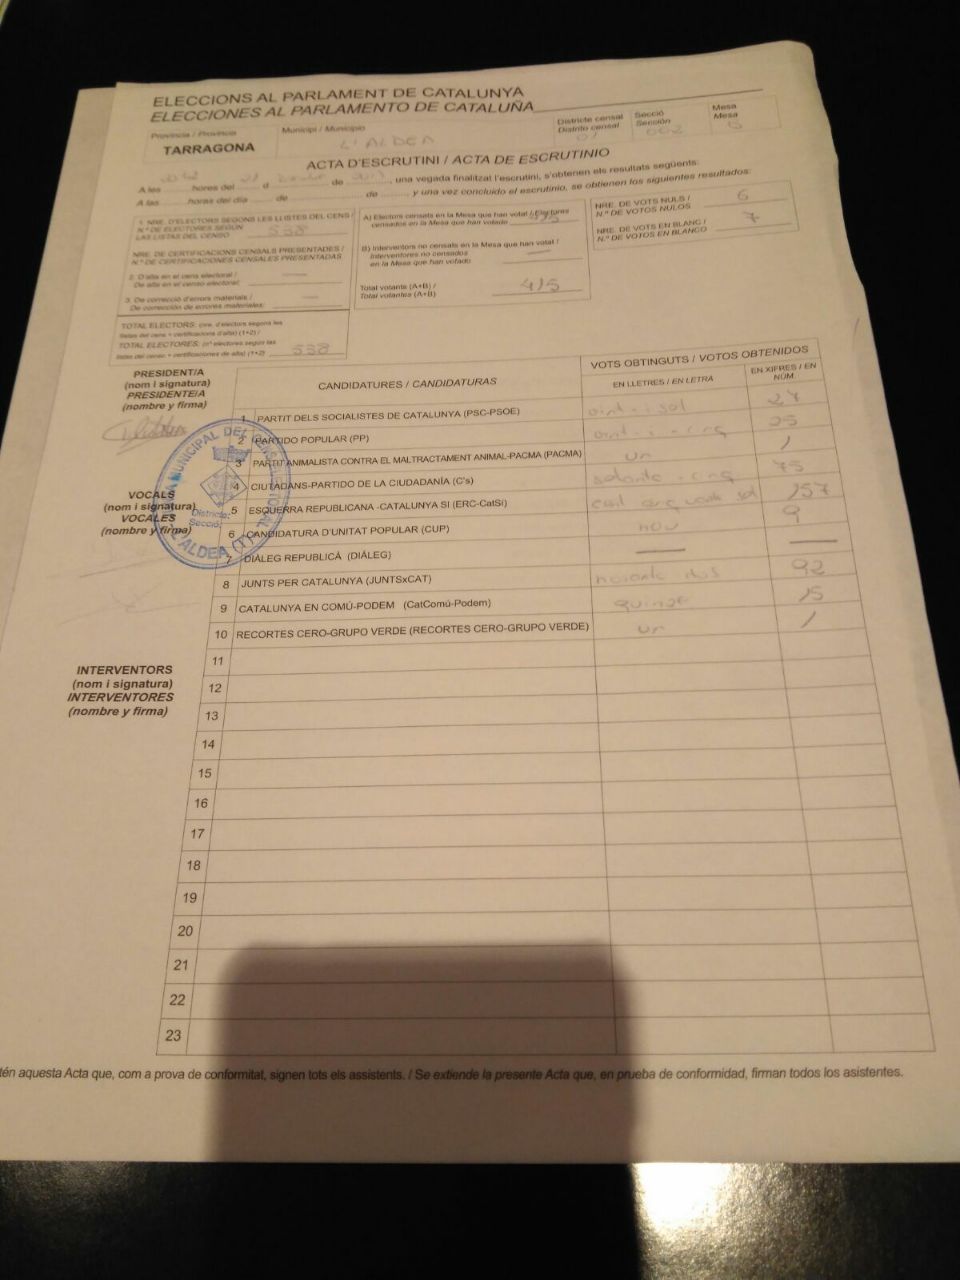 ELECCIONS AL PARLAMENT DE CATALUNYA
ELECCIONES AL PARLAMENTO DE CATALUÑA
Provincia / Provincia
TARRAGONA
Municipi / Municipio
L'ALDEA
Districte censal
Distrito censal
01
Secció
Sección
002
Mesa
Mesa
B
ACTA D'ESCRUTINI / ACTA DE ESCRUTINIO
A les hores del d de , una vegada finalitzat l'escrutini, s'obtenen els resultats següents:
A las horas del día de de , y una vez concluido el escrutinio, se obtienen los siguientes resultados:
1. NRE. D'ELECTORS SEGONS LES LLISTES DEL CENS /
N.º DE ELECTORES SEGÚN
LAS LISTAS DEL CENSO
538
NRE. DE CERTIFICACIONS CENSALS PRESENTADES /
N.º DE CERTIFICACIONES CENSALES PRESENTADAS
2. D'alta en el cens electoral /
De alta en el censo electoral: —
3. De correcció d'errors materials /
De corrección de errores materiales: —
TOTAL ELECTORS: (nre. d'electors segons les
llistes del cens + certificacions d'alta) (1+2) /
TOTAL ELECTORES: (nº electores según las
listas del censo + certificaciones de alta) (1+2) 538
A) Electors censats en la Mesa que han votat / Electores
censados en la Mesa que han votado 415
B) Interventors no censats en la Mesa que han votat /
Interventores no censados
en la Mesa que han votado —
Total votants (A+B) /
Total votantes (A+B) 415
NRE. DE VOTS NULS /
N.º DE VOTOS NULOS 6
NRE. DE VOTS EN BLANC /
N.º DE VOTOS EN BLANCO 7
PRESIDENT/A
(nom i signatura)
PRESIDENTE/A
(nombre y firma)
VOCALS
(nom i signatura)
VOCALES
(nombre y firma)
INTERVENTORS
(nom i signatura)
INTERVENTORES
(nombre y firma)
JUNTA MUNICIPAL DEL CENS ELECTORAL
Districte:
Secció:
L'ALDEA (T)
CANDIDATURES / CANDIDATURAS
VOTS OBTINGUTS / VOTOS OBTENIDOS
EN LLETRES / EN LETRA
EN XIFRES / EN NÚM.
1 PARTIT DELS SOCIALISTES DE CATALUNYA (PSC-PSOE) vint-i-set 27
2 PARTIDO POPULAR (PP) vint-i-cinc 25
3 PARTIT ANIMALISTA CONTRA EL MALTRACTAMENT ANIMAL-PACMA (PACMA) un 1
4 CIUTADANS-PARTIDO DE LA CIUDADANÍA (C's) setanta cinc 75
5 ESQUERRA REPUBLICANA -CATALUNYA SI (ERC-CatSí) cent cinquanta set 157
6 CANDIDATURA D'UNITAT POPULAR (CUP) nou 9
7 DIÀLEG REPUBLICÀ (DIÀLEG) — —
8 JUNTS PER CATALUNYA (JUNTSxCAT) noranta dos 92
9 CATALUNYA EN COMÚ-PODEM (CatComú-Podem) quinze 15
10 RECORTES CERO-GRUPO VERDE (RECORTES CERO-GRUPO VERDE) un 1
11
12
13
14
15
16
17
18
19
20
21
22
23
tén aquesta Acta que, com a prova de conformitat, signen tots els assistents. / Se extiende la presente Acta que, en prueba de conformidad, firman todos los asistentes.